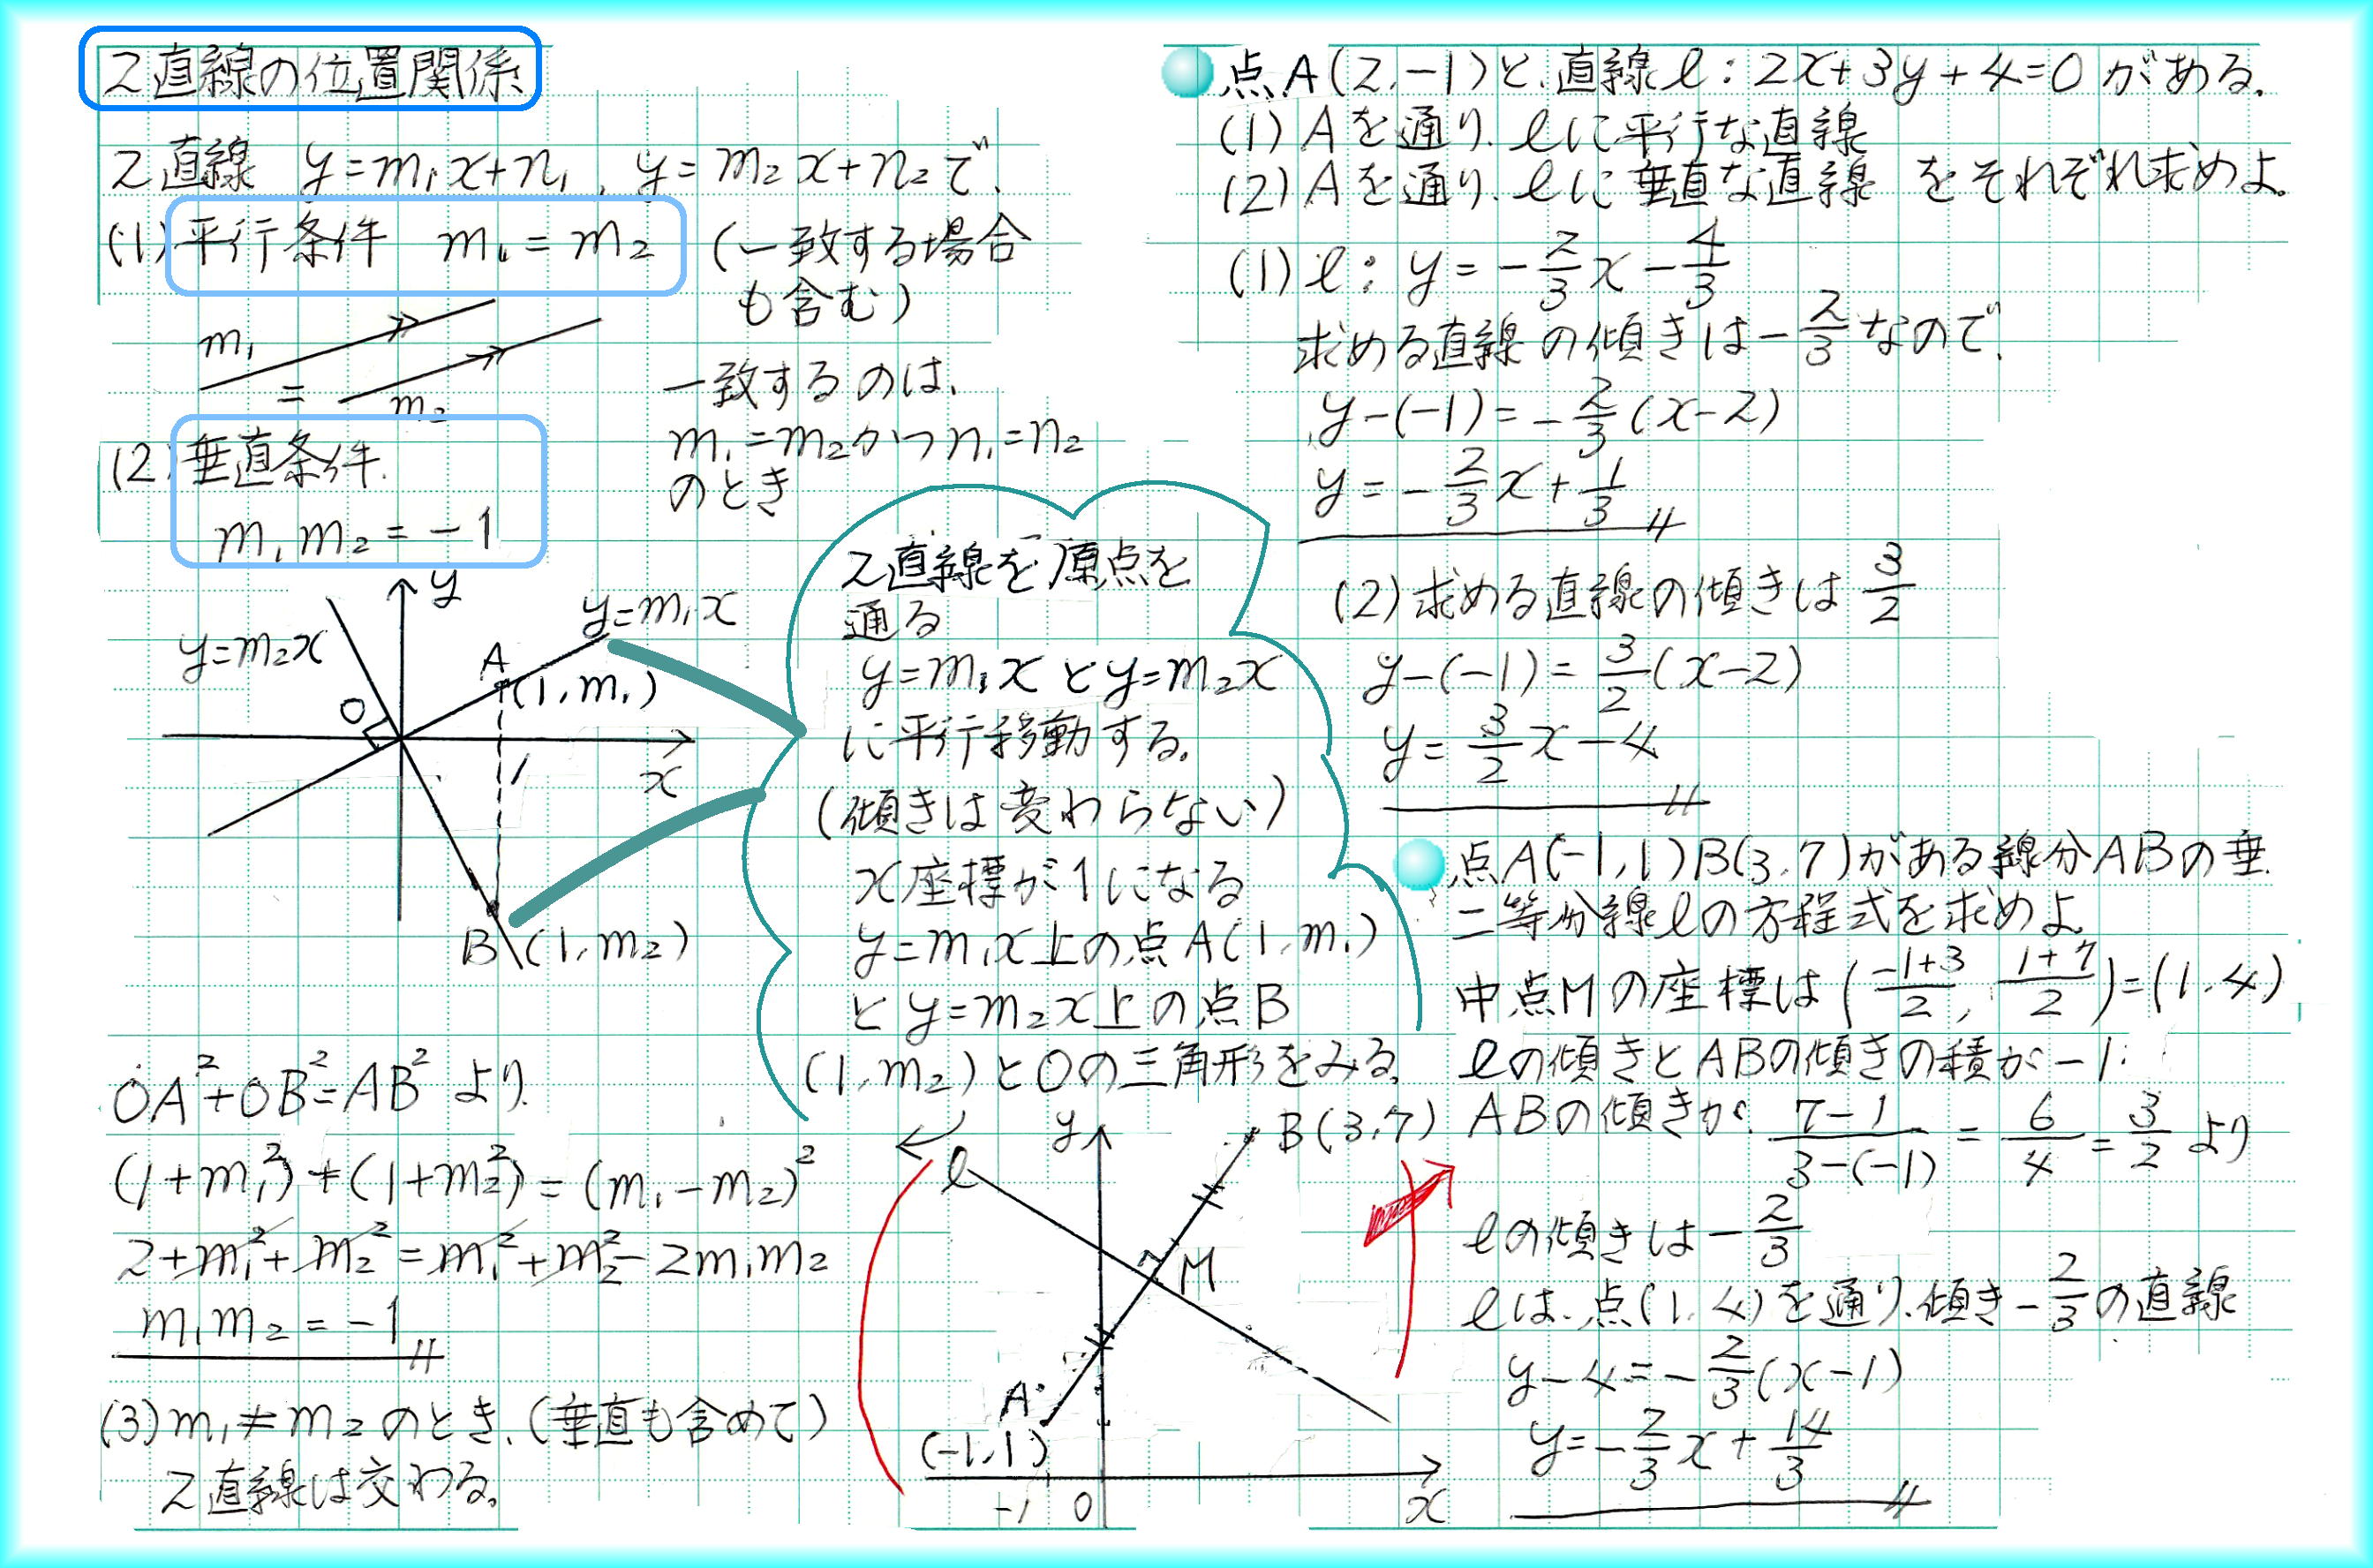 2直線の位置関係
2直線 y=m₁x+n₁, y=m₂x+n₂で、
(1)平行条件 m₁=m₂ (一致する場合
も含む)
m₁
=
m₂
一致するのは、
m₁=m₂かつn₁=n₂
のとき
(2)垂直条件
m₁m₂=-1
y
y=m₁x
y=m₂x
A
(1,m₁)
O
1
x
B(1,m₂)
2直線を原点を
通る
y=m₁xとy=m₂x
に平行移動する。
(傾きは変わらない)
x座標が1になる
y=m₁x上の点A(1,m₁)
とy=m₂x上の点B
(1,m₂)とOの三角形をみる。
OA²+OB²=AB²より
(1+m₁²)+(1+m₂²)=(m₁-m₂)²
2+m₁²+m₂²=m₁²+m₂²-2m₁m₂
m₁m₂=-1
(3)m₁≠m₂のとき、(垂直も含めて)
2直線は交わる。
点A(2,-1)と、直線ℓ:2x+3y+4=0がある。
(1)Aを通り、ℓに平行な直線
(2)Aを通り、ℓに垂直な直線 をそれぞれ求めよ。
(1)ℓ:y=-2/3x-4/3
求める直線の傾きは-2/3なので、
y-(-1)=-2/3(x-2)
y=-2/3x+1/3
(2)求める直線の傾きは3/2
y-(-1)=3/2(x-2)
y=3/2x-4
点A(-1,1)B(3,7)がある線分ABの垂
二等分線ℓの方程式を求めよ
中点Mの座標は((-1+3)/2,(1+7)/2)=(1,4)
ℓの傾きとABの傾きの積が-1
ABの傾きが、(7-1)/(3-(-1))=6/4=3/2より
ℓの傾きは-2/3
ℓは、点(1,4)を通り、傾き-2/3の直線
y-4=-2/3(x-1)
y=-2/3x+14/3
ℓ
y
B(3,7)
M
A
(-1,1)
-1
0
x